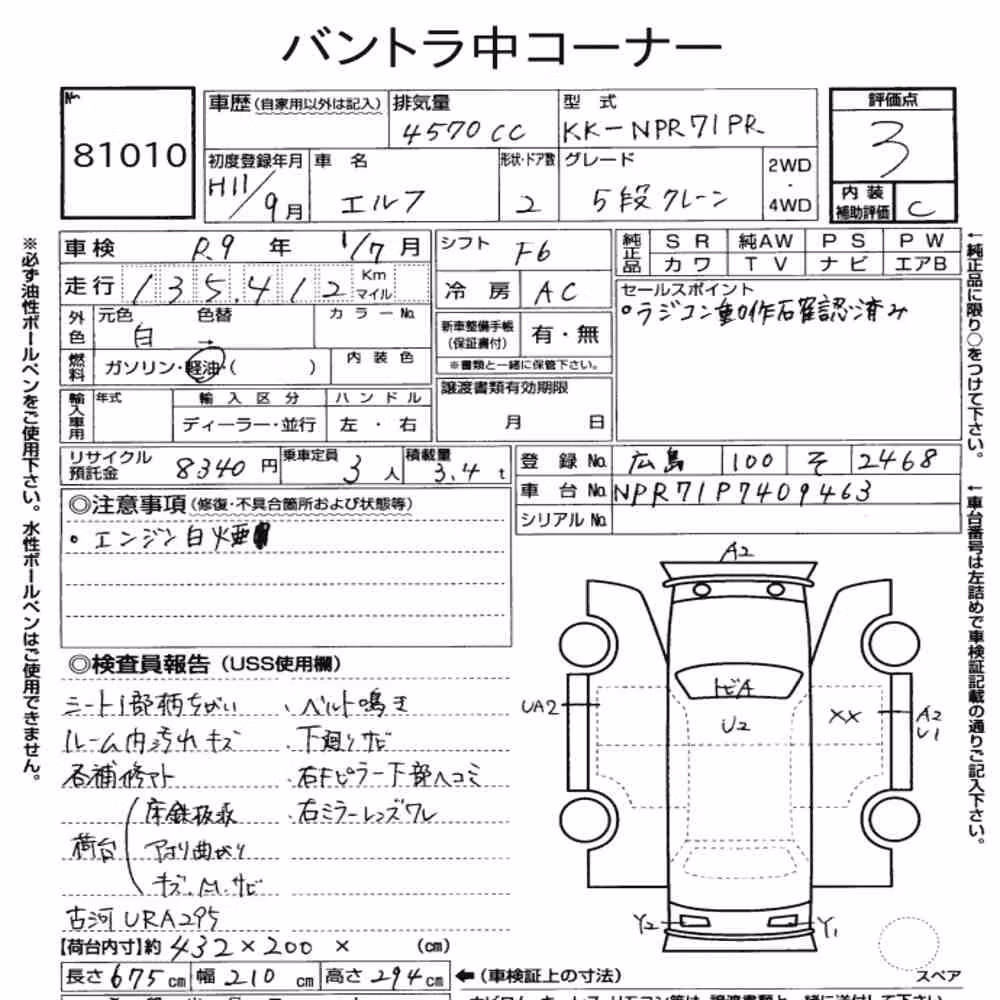 バントラ中コーナー
№
81010
車歴(自家用以外は記入)
排気量
4570cc
型 式
KK-NPR71PR
評価点
3
初度登録年月
H11/9月
車 名
エルフ
形状・ドア数
2
グレード
5段クレーン
2WD
・
4WD
内 装
補助評価
C
※必ず油性ボールペンをご使用下さい。水性ボールペンはご使用できません。
車検 R.9 年 1/7月
シフト F6
純正品
SR 純AW PS PW
カワ TV ナビ エアB
走行 135,412 Km マイル
冷 房 AC
セールスポイント
。ラジコン動作確認済み
外色
元色 色替
白 →
カラー№
新車整備手帳
(保証書付)
有・無
※書類と一緒に保管下さい。
燃料
ガソリン・軽油・( )
内装色
譲渡書類有効期限
月 日
輸入車用
年式
輸入区分 ハンドル
ディーラー・並行 左・右
←純正品に限り○をつけて下さい。
リサイクル
預託金
8340円
乗車定員
3人
積載量
3.4t
登録№ 広島 100 そ 2468
車台№ NPR71P7409463
シリアル№
←車台番号は左詰めで車検証記載の通りご記入下さい。
◎注意事項(修復・不具合箇所および状態等)
・エンジン白煙
◎検査員報告(USS使用欄)
シート1部柄ちがい
・ベルト鳴き
ルーム内汚れキズ
・下廻りサビ
各補修アト
・右Fピラー下部ヘコミ
荷台
床鉄板張
・右ミラーレンズワレ
アオリ曲がり
キズ.M.サビ
古河URA295
【荷台内寸】約 432×200× (cm)
長さ675cm 幅210cm 高さ294cm
←(車検証上の寸法)
A2
トビA
UA2
U2
XX
A2
U1
Y2
Y1
スペア